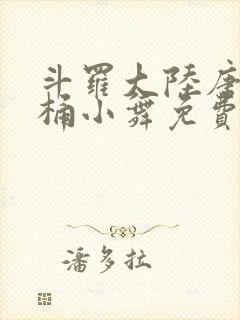 斗羅大陸唐
桶小舞免費
潘多拉